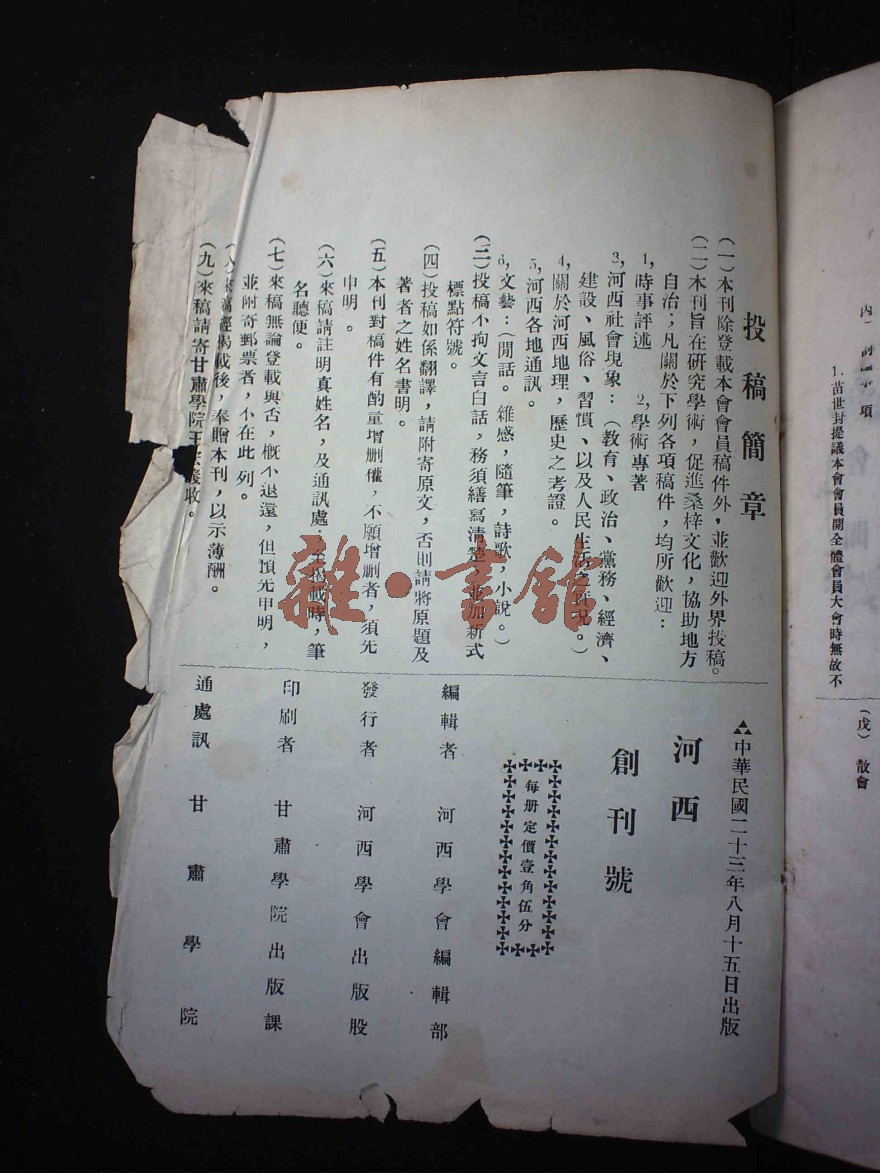 1. 苗世封提議本會會員開全體會員大會時無故不
(戊) 散會
投稿簡章
(一)本刊除登載本會會員稿件外,並歡迎外界投稿。
(二)本刊旨在研究學術,促進桑梓文化,協助地方
自治;凡關於下列各項稿件,均所歡迎:
1,時事評述 2,學術專著
3,河西社會現象:(教育、政治、黨務、經濟、
建設、風俗、習慣、以及人民生活之 。)
4,關於河西地理,歷史之考證。
5,河西各地通訊。
6,文藝:(閒話。雜感,隨筆,詩歌 小說。)
(三)投稿不拘文言白話,務須繕寫清楚,並加新式
標點符號。
(四)投稿如係翻譯,請附寄原文,否則請將原題及
著者之姓名書明。
(五)本刊對稿件有酌量增刪權,不願增刪者,須先
申明。
(六)來稿請註明真姓名,及通訊處,至揭載時,筆
名聽便。
(七)來稿無論登載與否,概不退還,但預先申明,
並附寄郵票者,不在此列。
(八)來稿經揭載後,奉贈本刊,以示薄酬。
(九)來稿請寄甘肅學院 收。
中華民國二十三年八月十五日出版
河西
創刊號
每册定價壹角伍分
編輯者 河西學會編輯部
發行者 河西學會出版股
印刷者 甘肅學院出版課
通處訊 甘肅學院
雜·書館